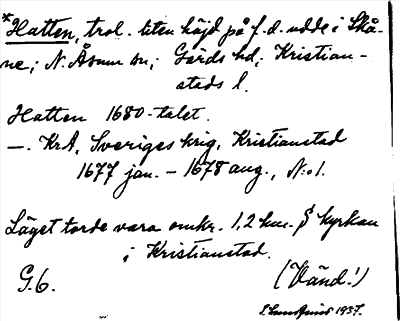 *Hatten, trol. liten höjd på f. d. udde i Skå-
ne; N. Åsum sn; Gärds hd, Kristian-
stads l.
Hatten 1680-talet.
—. KrA, Sveriges krig, Kristianstad
1677 jan. – 1678 aug., N:o 1.
Läget torde vara omkr. 1,2 km. S kyrkan
i Kristianstad.
G.6. (Vänd!)
1937.